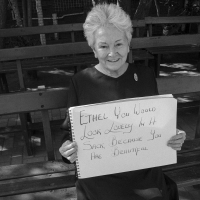 ETHEL YOU WOULD
LOOK LOVELY IN A
SACK BECAUSE YOU
ARE BEAUTIFUL